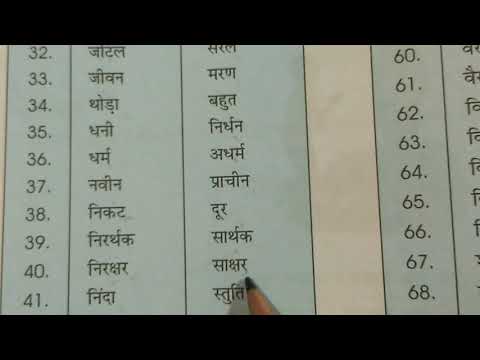 32. जटिल सरल 60.
33. जीवन मरण 61.
34. थोड़ा बहुत 62.
35. धनी निर्धन 63.
36. धर्म अधर्म 64.
37. नवीन प्राचीन 65.
38. निकट दूर 66.
39. निरर्थक सार्थक 67.
40. निरक्षर साक्षर 68.
41. निंदा स्तुति